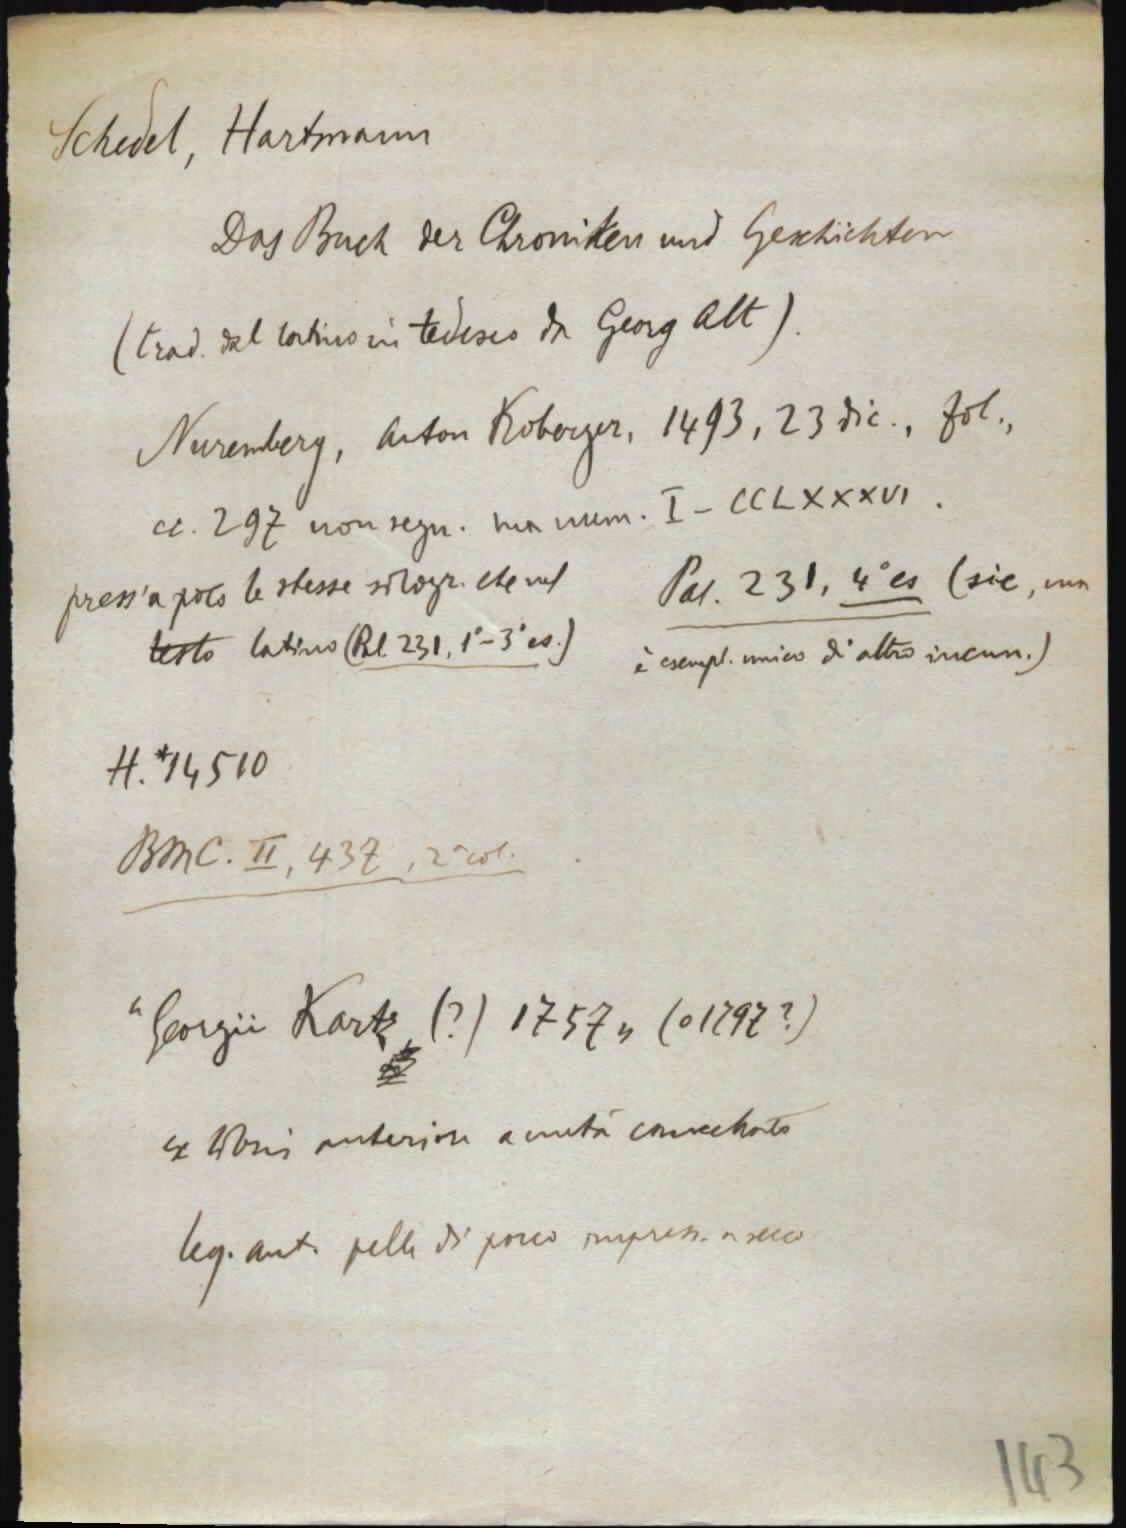 Schedel, Hartmann
Das Buch der Chroniken und Geschichten
(trad. dal latino in tedesco da Georg Alt).
Nuremberg, Anton Koberger, 1493, 23 dic., fol.,
cc. 297 non segn. ma num. I – CCLXXXVI.
press'a poco le stesse silogr. che nel
testo latino (Pal. 231, 1° – 3° es.)
Pal. 231, 4° es (sic, ma
è esempl. unico di altro incun.)
H. *14510
BMC. II, 437, 2ª col.
"Georgii Kartz (?) 1757" (o 1797?)
ex libris anteriore a metà
leg. ant. pelle di porco impress. a secco
143